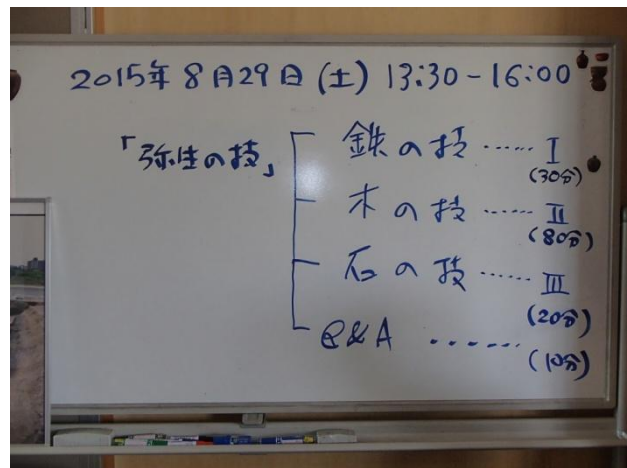 2015年8月29日(土) 13:30-16:00
「弥生の技」
鉄の技……Ⅰ
(30分)
木の技……Ⅱ
(80分)
石の技……Ⅲ
(20分)
Q&A ……
(10分)